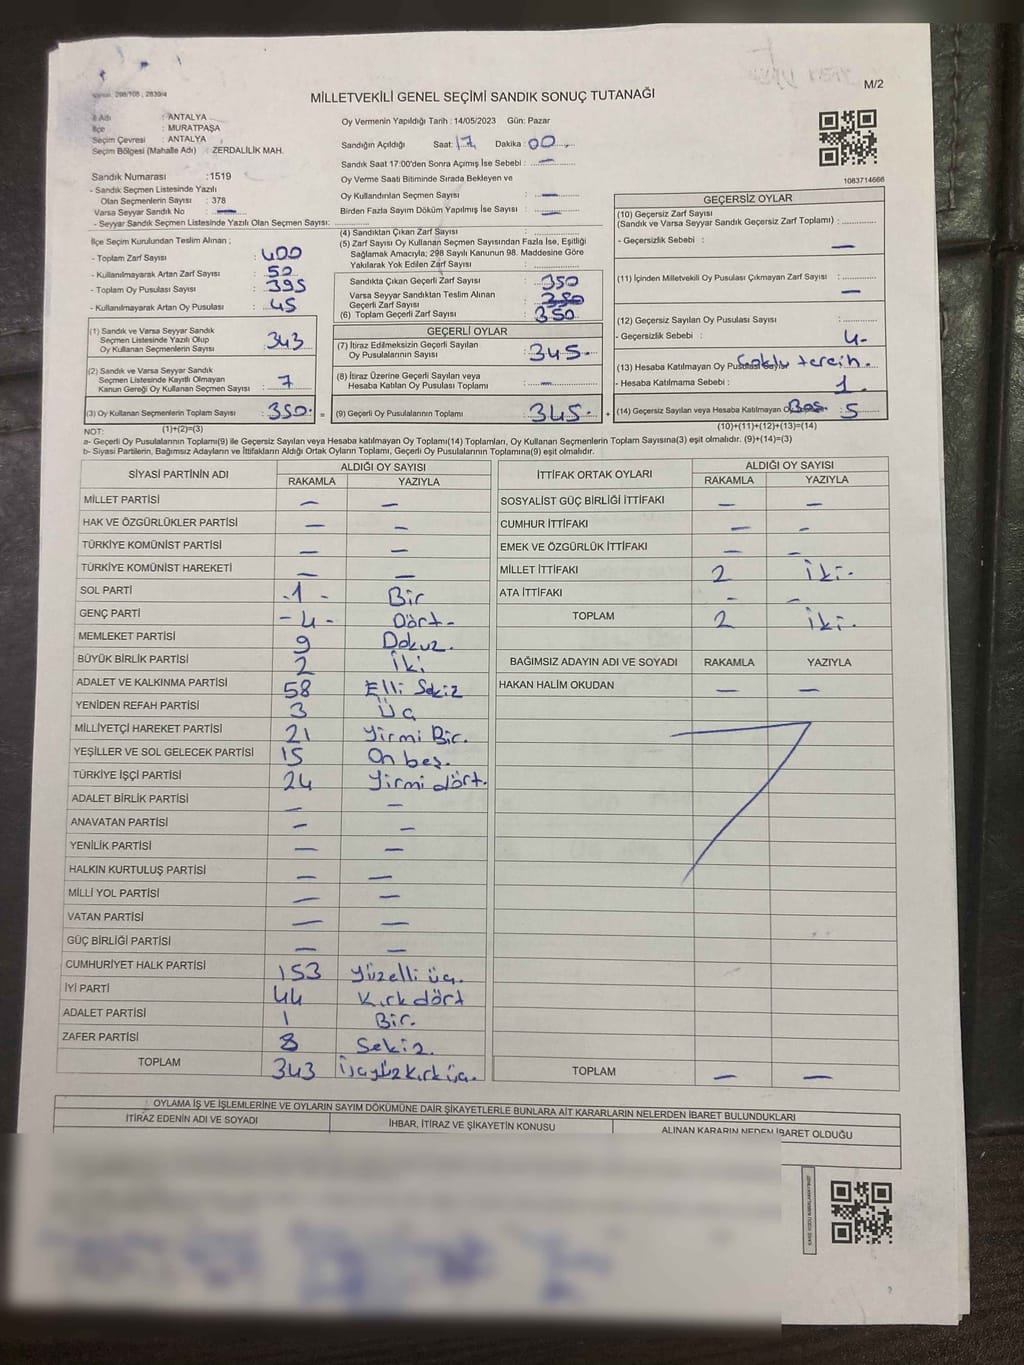 M/2
MİLLETVEKİLİ GENEL SEÇİMİ SANDIK SONUÇ TUTANAĞI
İl Adı : ANTALYA
İlçe : MURATPAŞA
Seçim Çevresi : ANTALYA
Seçim Bölgesi (Mahalle Adı) : ZERDALİLİK MAH.
Sandık Numarası : 1519
- Sandık Seçmen Listesinde Yazılı
Olan Seçmenlerin Sayısı : 378
Varsa Seyyar Sandık No : —
- Seyyar Sandık Seçmen Listesinde Yazılı Olan Seçmen Sayısı:
Oy Vermenin Yapıldığı Tarih : 14/05/2023 Gün: Pazar
Sandığın Açıldığı Saat: 17 Dakika : 00
Sandık Saat 17:00'den Sonra Açımış İse Sebebi : —
Oy Verme Saati Bitiminde Sırada Bekleyen ve
Oy Kullandırılan Seçmen Sayısı : —
Birden Fazla Sayım Döküm Yapılmış İse Sayısı : —
1083714666
İlçe Seçim Kurulundan Teslim Alınan ;
- Toplam Zarf Sayısı : 400
- Kullanılmayarak Artan Zarf Sayısı : 50
- Toplam Oy Pusulası Sayısı : 395
- Kullanılmayarak Artan Oy Pusulası : 45
(1) Sandık ve Varsa Seyyar Sandık
Seçmen Listesinde Yazılı Olup
Oy Kullanan Seçmenlerin Sayısı : 343
(2) Sandık ve Varsa Seyyar Sandık
Seçmen Listesinde Kayıtlı Olmayan
Kanun Gereği Oy Kullanan Seçmen Sayısı : 7
(3) Oy Kullanan Seçmenlerin Toplam Sayısı : 350 =
(4) Sandıktan Çıkan Zarf Sayısı :
(5) Zarf Sayısı Oy Kullanan Seçmen Sayısından Fazla İse, Eşitliği
Sağlamak Amacıyla; 298 Sayılı Kanunun 98. Maddesine Göre
Yakılarak Yok Edilen Zarf Sayısı :
Sandıkta Çıkan Geçerli Zarf Sayısı : 350
Varsa Seyyar Sandıktan Teslim Alınan
Geçerli Zarf Sayısı :
(6) Toplam Geçerli Zarf Sayısı : 350
GEÇERLİ OYLAR
(7) İtiraz Edilmeksizin Geçerli Sayılan
Oy Pusulalarının Sayısı : 345
(8) İtiraz Üzerine Geçerli Sayılan veya
Hesaba Katılan Oy Pusulası Toplamı : —
(9) Geçerli Oy Pusulalarının Toplamı : 345 +
GEÇERSİZ OYLAR
(10) Geçersiz Zarf Sayısı
(Sandık ve Varsa Seyyar Sandık Geçersiz Zarf Toplamı) :
- Geçersizlik Sebebi : —
(11) İçinden Milletvekili Oy Pusulası Çıkmayan Zarf Sayısı : —
(12) Geçersiz Sayılan Oy Pusulası Sayısı :
- Geçersizlik Sebebi : 4
Çoklu tercih.
(13) Hesaba Katılmayan Oy Pusulası Sayısı :
- Hesaba Katılmama Sebebi : 1
Boş
(14) Geçersiz Sayılan veya Hesaba Katılmayan 5
NOT: (1)+(2)=(3)
(10)+(11)+(12)+(13)=(14)
a- Geçerli Oy Pusulalarının Toplamı(9) ile Geçersiz Sayılan veya Hesaba katılmayan Oy Toplamı(14) Toplamları, Oy Kullanan Seçmenlerin Toplam Sayısına(3) eşit olmalıdır. (9)+(14)=(3)
b- Siyasi Partilerin, Bağımsız Adayların ve İttifakların Aldığı Ortak Oyların Toplamı, Geçerli Oy Pusulalarının Toplamına(9) eşit olmalıdır.
SİYASİ PARTİNİN ADI ALDIĞI OY SAYISI
RAKAMLA YAZIYLA
MİLLET PARTİSİ — —
HAK VE ÖZGÜRLÜKLER PARTİSİ — —
TÜRKİYE KOMÜNİST PARTİSİ — —
TÜRKİYE KOMÜNİST HAREKETİ — —
SOL PARTİ -1- Bir
GENÇ PARTİ -4- Dört-
MEMLEKET PARTİSİ 9 Dokuz.
BÜYÜK BİRLİK PARTİSİ 2 İki
ADALET VE KALKINMA PARTİSİ 58 Elli Sekiz
YENİDEN REFAH PARTİSİ 3 Üç
MİLLİYETÇİ HAREKET PARTİSİ 21 Yirmi Bir.
YEŞİLLER VE SOL GELECEK PARTİSİ 15 On beş.
TÜRKİYE İŞÇİ PARTİSİ 24 Yirmi dört.
ADALET BİRLİK PARTİSİ — —
ANAVATAN PARTİSİ — —
YENİLİK PARTİSİ — —
HALKIN KURTULUŞ PARTİSİ — —
MİLLİ YOL PARTİSİ — —
VATAN PARTİSİ — —
GÜÇ BİRLİĞİ PARTİSİ — —
CUMHURİYET HALK PARTİSİ 153 Yüzelli üç.
İYİ PARTİ 44 Kırk dört
ADALET PARTİSİ 1 Bir.
ZAFER PARTİSİ 8 Sekiz.
TOPLAM 343 Üçyüzkırküç.
İTTİFAK ORTAK OYLARI ALDIĞI OY SAYISI
RAKAMLA YAZIYLA
SOSYALİST GÜÇ BİRLİĞİ İTTİFAKI — —
CUMHUR İTTİFAKI — —
EMEK VE ÖZGÜRLÜK İTTİFAKI — —
MİLLET İTTİFAKI 2 İki-
ATA İTTİFAKI — —
TOPLAM 2 İki-
BAĞIMSIZ ADAYIN ADI VE SOYADI RAKAMLA YAZIYLA
HAKAN HALİM OKUDAN — —
TOPLAM — —
OYLAMA İŞ VE İŞLEMLERİNE VE OYLARIN SAYIM DÖKÜMÜNE DAİR ŞİKAYETLERLE BUNLARA AİT KARARLARIN NELERDEN İBARET BULUNDUKLARI
İTİRAZ EDENİN ADI VE SOYADI İHBAR, İTİRAZ VE ŞİKAYETİN KONUSU ALINAN KARARIN NEDEN İBARET OLDUĞU